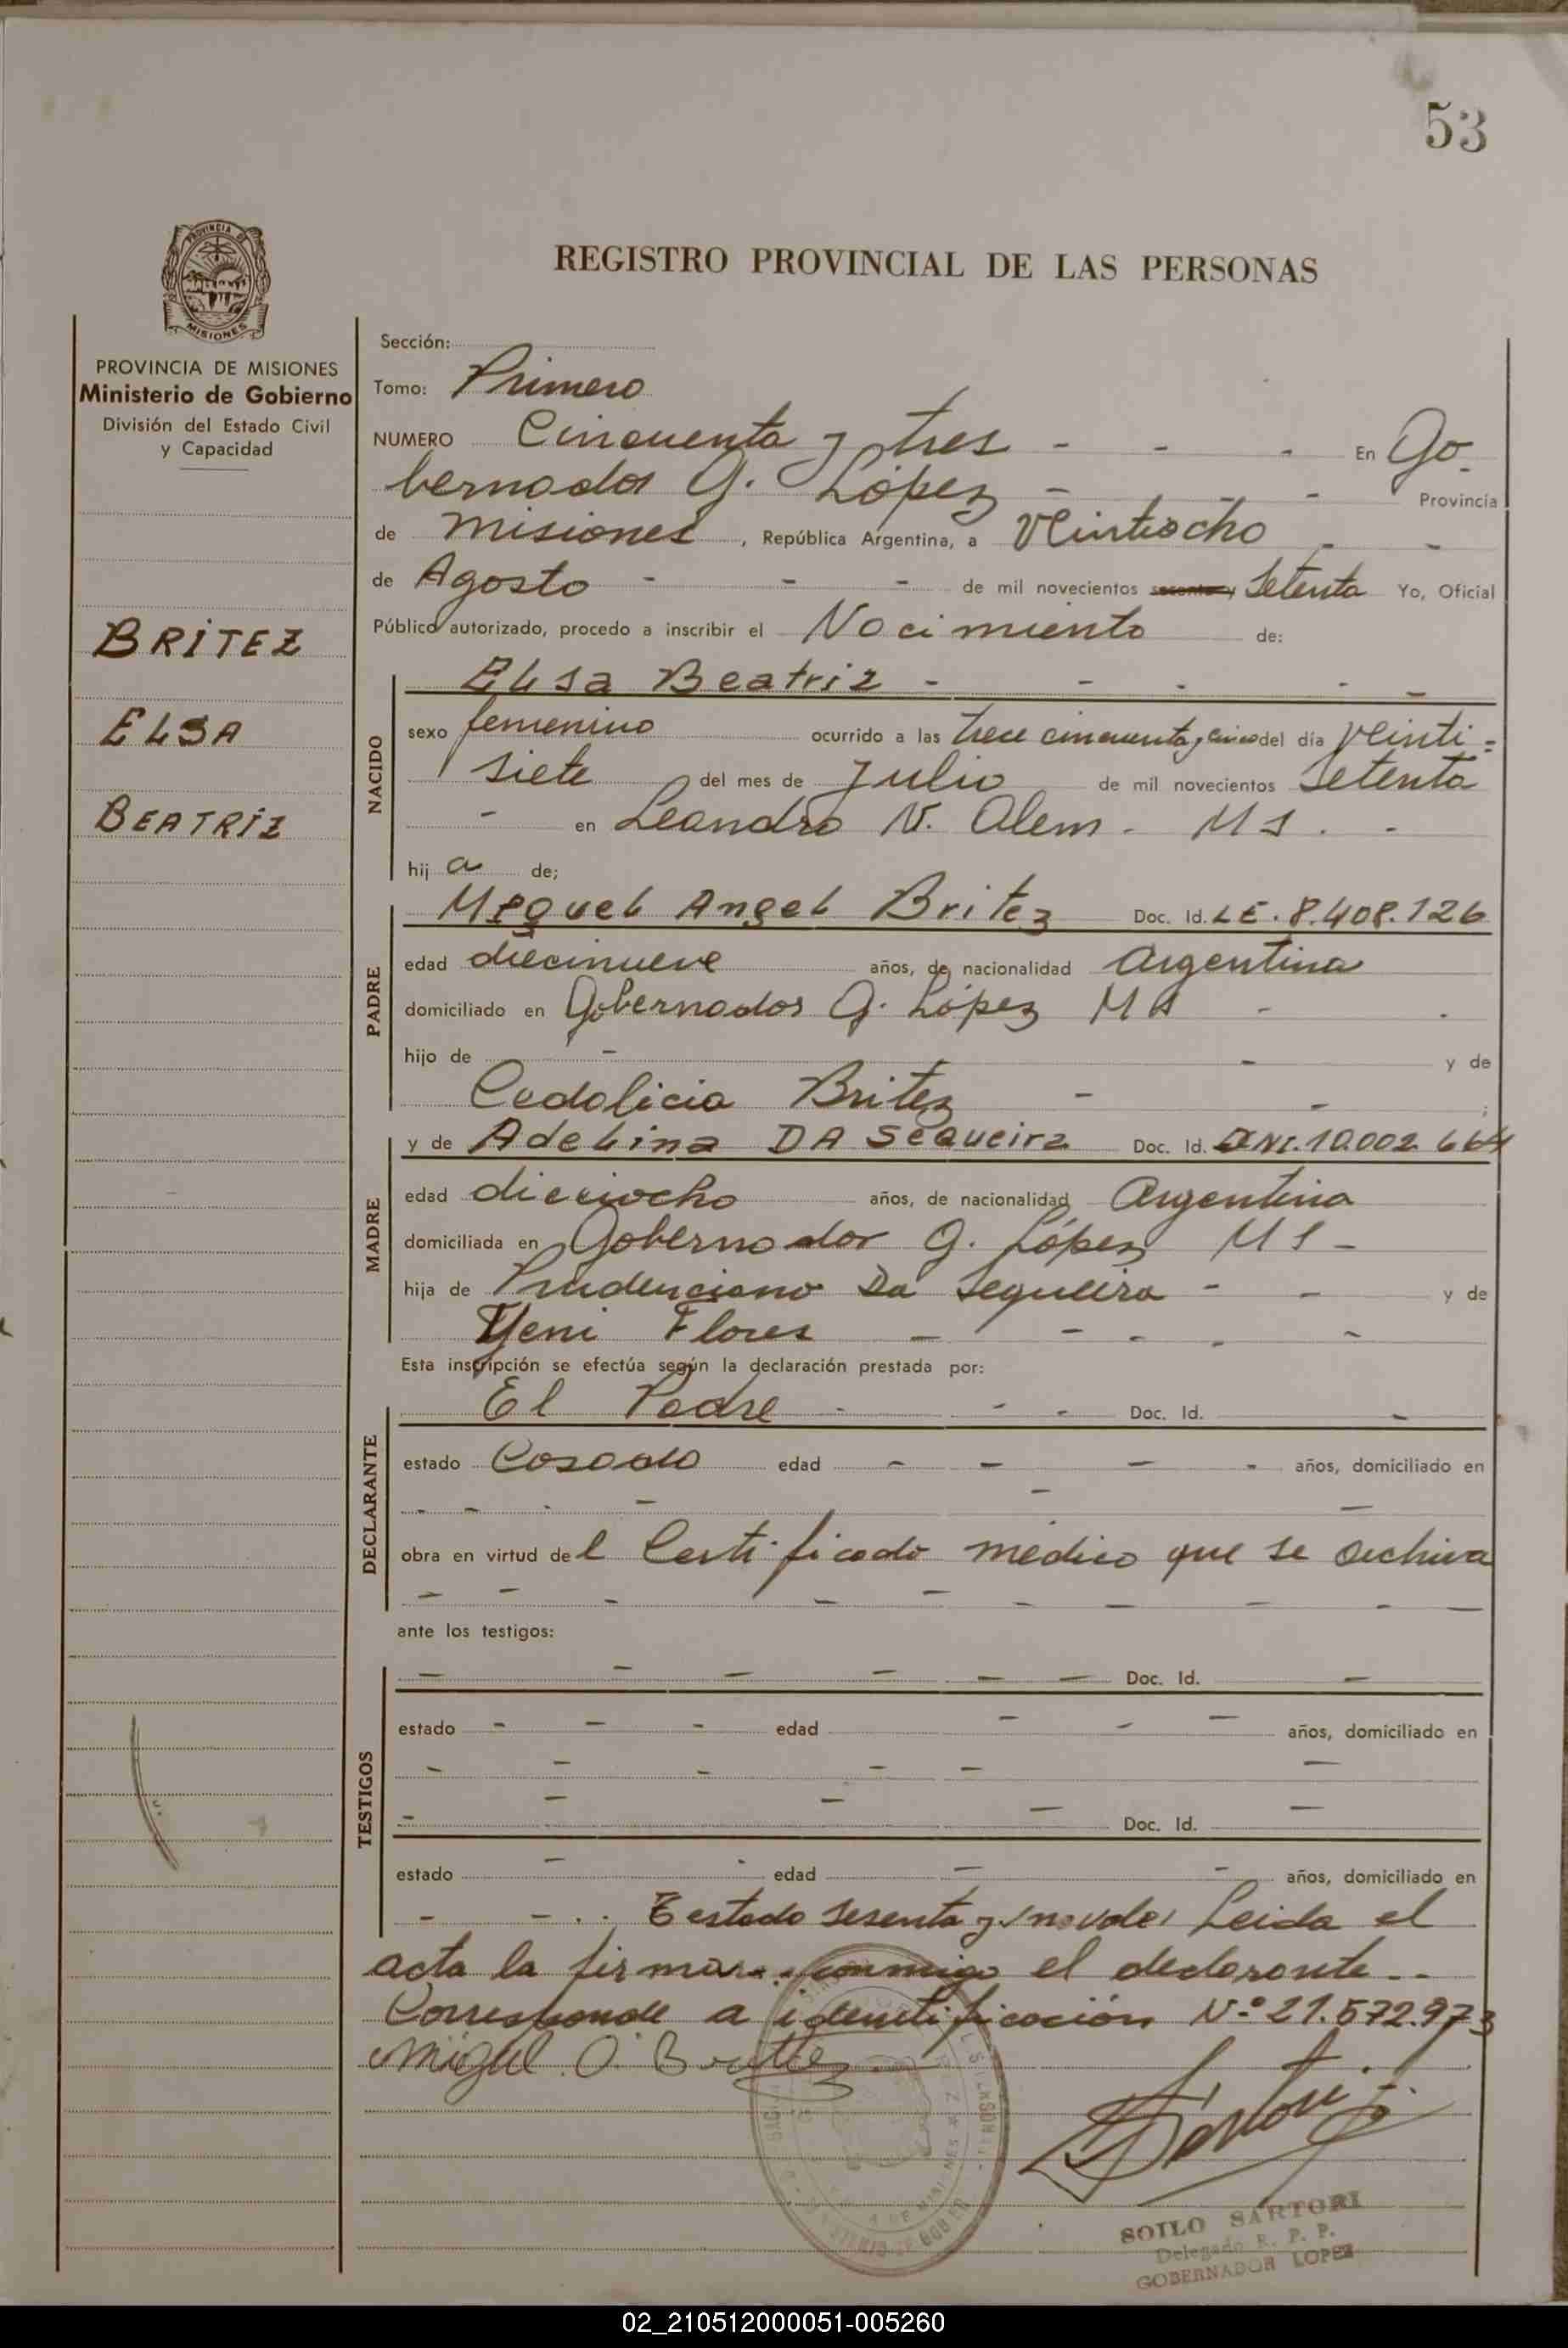 53
PROVINCIA DE
MISIONES
REGISTRO PROVINCIAL DE LAS PERSONAS
PROVINCIA DE MISIONES
Ministerio de Gobierno
División del Estado Civil
y Capacidad
BRITEZ
ELSA
BEATRIZ
Sección:
Tomo: Primero
NUMERO Cincuenta y tres - - - En Go-
bernador G. López - - - Provincia
de Misiones, República Argentina, a Veintiocho - -
de Agosto - - - de mil novecientos Setenta Yo, Oficial
Público autorizado, procedo a inscribir el Nacimiento de:
NACIDO
ELSA Beatriz - - - - -
sexo femenino ocurrido a las trece cincuenta y cinco del día Veinti=
siete del mes de Julio de mil novecientos Setenta
- en Leandro N. Alem - MS. -
hija de;
PADRE
Miguel Angel Britez Doc. Id. LE. 8.408.126
edad diecinueve años, de nacionalidad Argentina
domiciliado en Gobernador G. López MS - .
hijo de - - y de
Britez - - ;
MADRE
y de Adelina DA Sequeira Doc. Id. DNI. 10.002.664
edad dieciocho años, de nacionalidad Argentina
domiciliada en Gobernador G. López MS -
hija de Prudenciano Da Sequeira - - y de
Yeni Flores - - - - -
Esta inscripción se efectúa según la declaración prestada por:
DECLARANTE
El Padre - - - Doc. Id. -
estado Casado edad - - - - años, domiciliado en
obra en virtud del Certificado médico que se archiva
ante los testigos:
TESTIGOS
Doc. Id.
estado edad años, domiciliado en
Doc. Id.
estado edad años, domiciliado en
Testado sesenta y Leida el
acta la firma conmigo el declarante --
Corresponde a identificación Nº 21.572.973
Miguel A. Britez
SOILO SARTORI
Delegado R. P. P.
GOBERNADOR LOPEZ
02_210512000051-005260